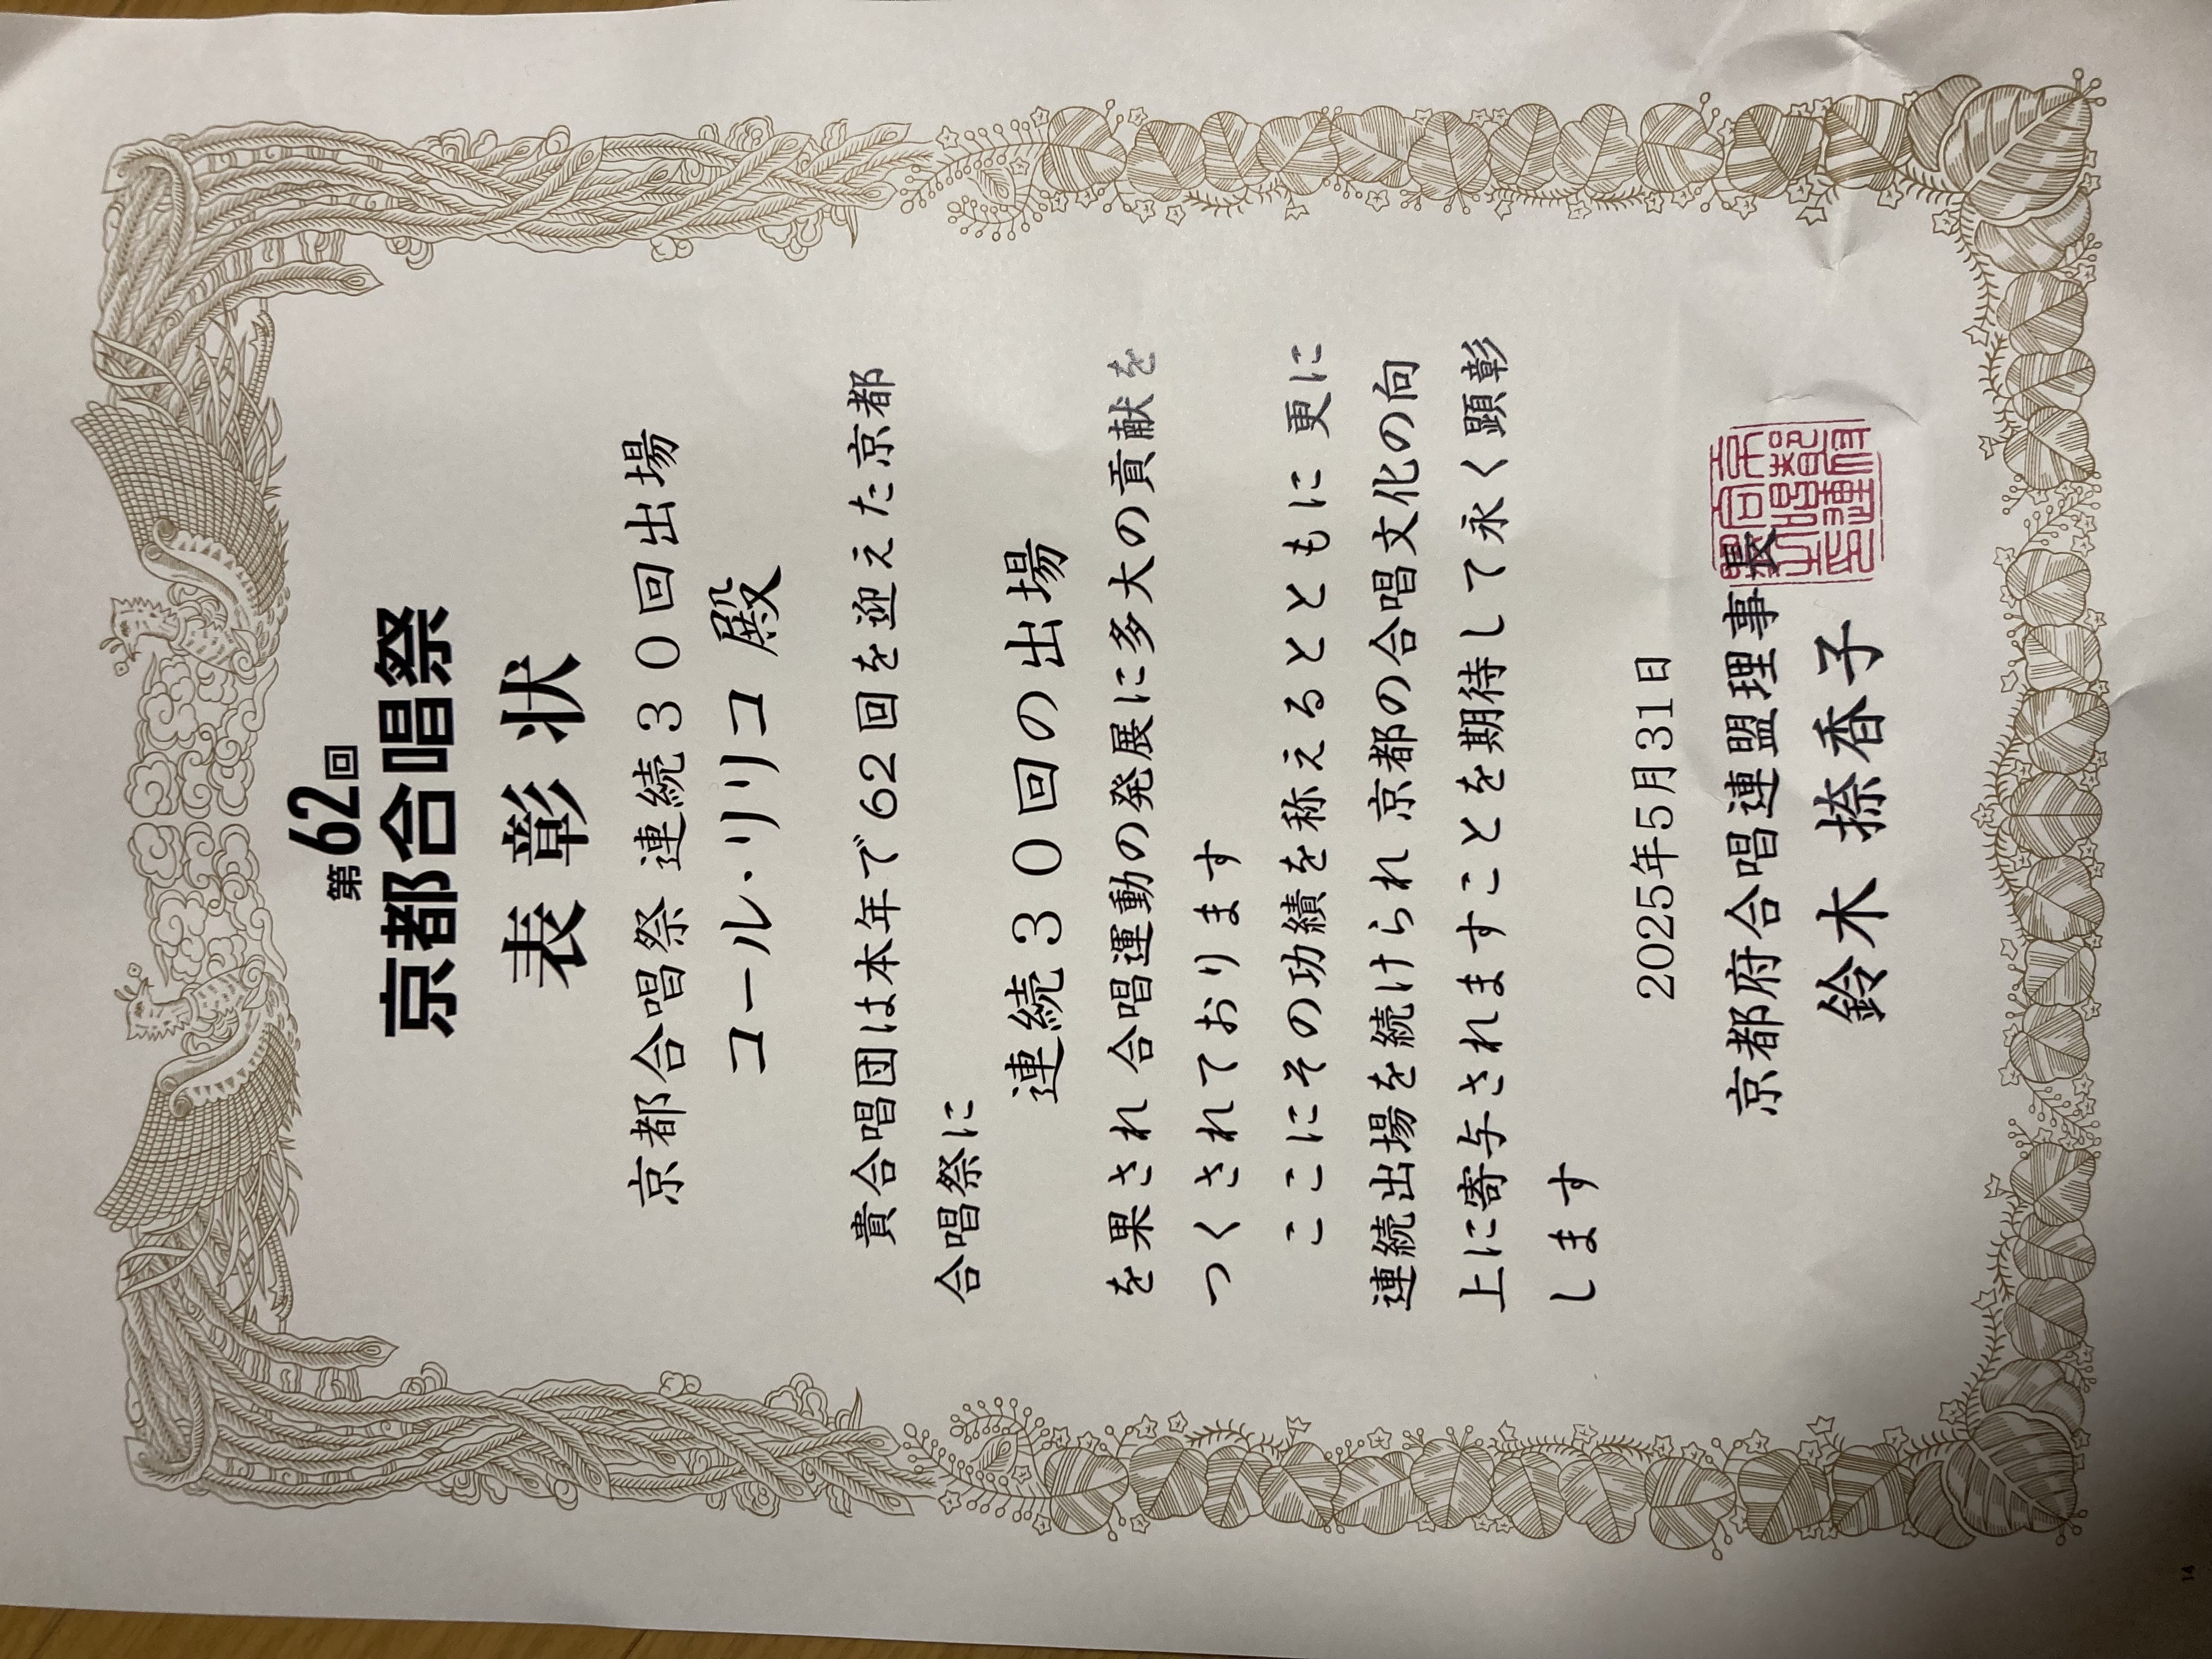 第62回
京都合唱祭
表彰状
京都合唱祭 連続30回出場
コール・リリコ 殿
貴合唱団は本年で62回を迎えた京都
合唱祭に
連続30回の出場
を果され 合唱運動の発展に多大の貢献を
つくされております
ここにその功績を称えるとともに 更に
連続出場を続けられ 京都の合唱文化の向
上に寄与されますことを期待して永く顕彰
します
2025年5月31日
京都府合唱連盟理事長
鈴木 捺香子
14